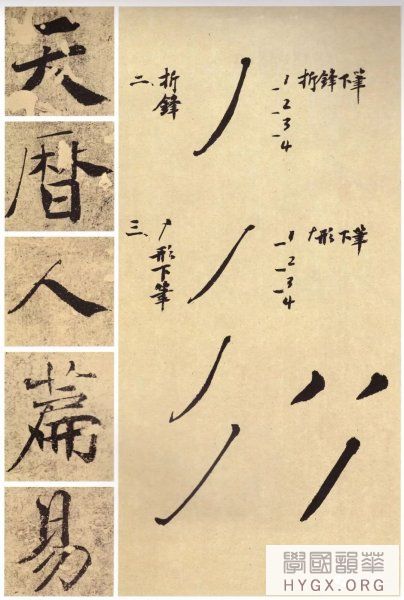 天
暦
人
篇
易
二、折鋒
1 折鋒下筆
2
3
4
三、形下筆
1 形下筆
2
3
4
學國韻華
HYGX.ORG